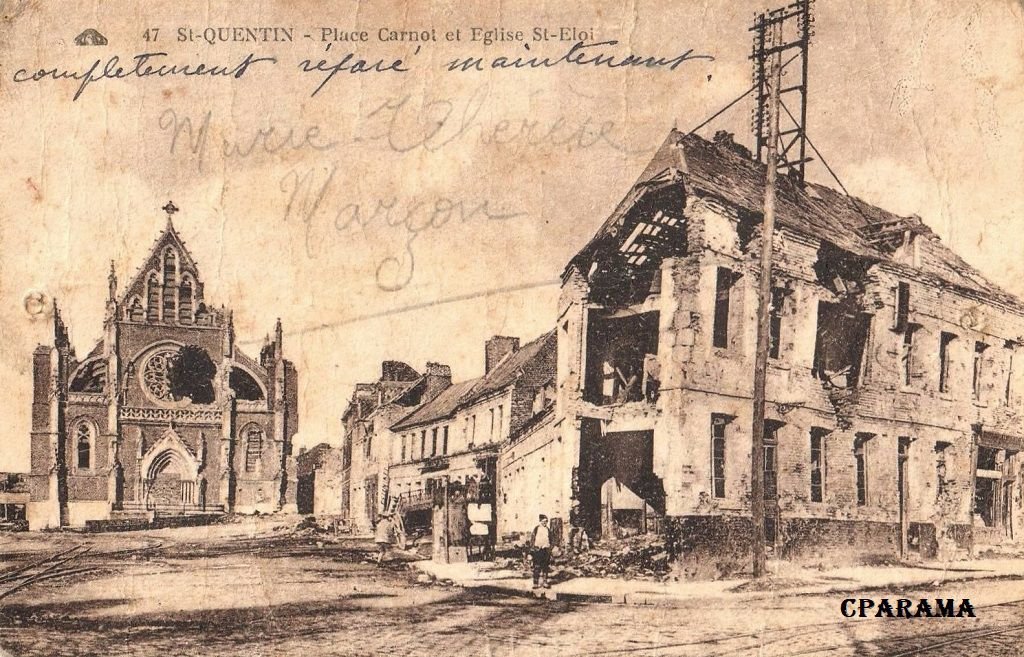 47 St-QUENTIN - Place Carnot et Eglise St-Eloi
complettement réparé maintenant.
Marie-Thérèse
Marzon
CPARAMA